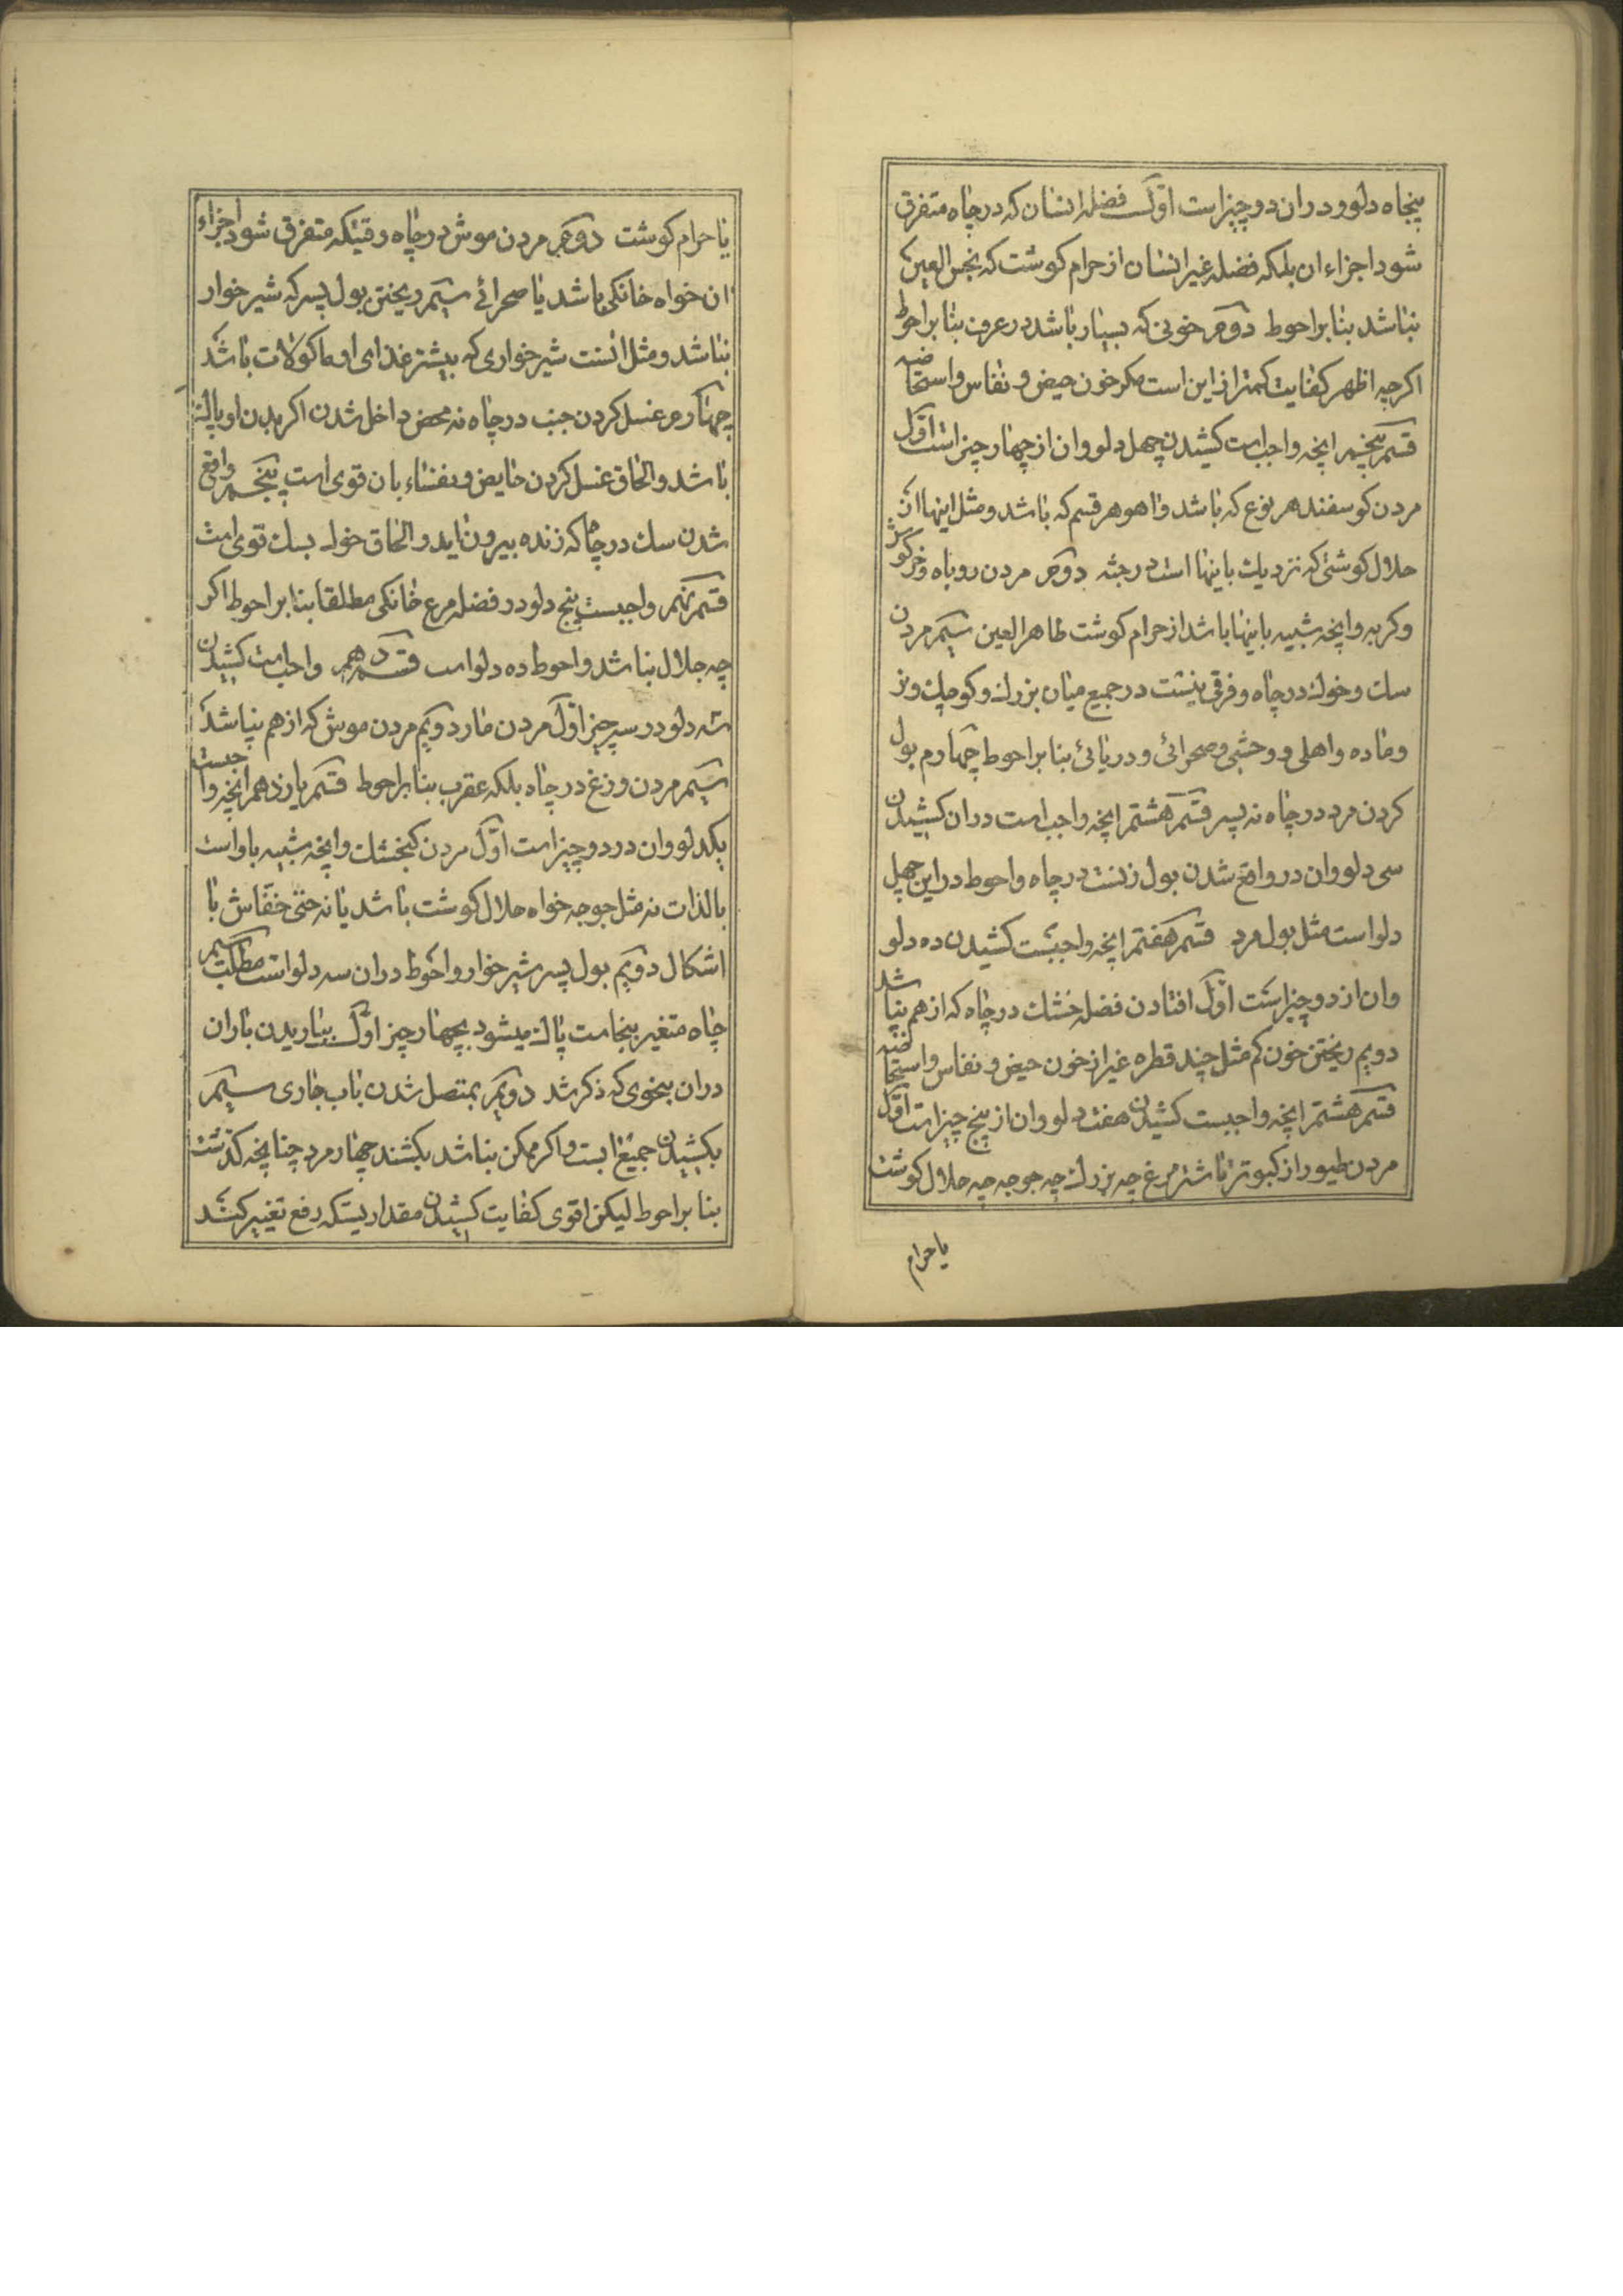 پنجاه دلو و دران دو چیز است اوّل فضله انسان که در چاه متفرق
شود اجزاء ان بلکه فضله غیر انسان از حرام کوشت که نجس العین
نباشد بنا بر احوط دویم خونی که بسیار باشد در عرف بنا بر احوط
اکرچه اظهر کفایت کمتر از این است مکر خون حیض و نفاس و استحاضه
قسم پنجم انچه واجب است کشیدن چهل دلو و ان از چهار چیز است اوّل
مردن کوسفند هر نوع که باشد و اهو هر قسم که باشد و مثل اینها از
حلال کوشتی که نزدیک باینها است در جثه دویم مردن روباه و خرکوش
و کربه و انچه شبیه باینها باشد از حرام کوشت طاهر العین سیّم مردن
سک و خوک در چاه و فرقی نیست در جمیع میان بزرک و کوچک و نر
و ماده و اهلی و وحشی و صحرائی و دریائی بنا بر احوط چهارم بول
کردن مرد در چاه نه پسر قسم هشتم انچه واجب است دران کشیدن
سی دلو و ان در واقع شدن بول زنست در چاه و احوط در این چهل
دلو است مثل بول مرد قسم هفتم انچه واجبست کشیدن ده دلو
و ان از دو چیز است اوّل افتادن فضله خشک در چاه که از هم نپاشد
دویم ریختن خون کم مثل چند قطره غیر از خون حیض و نفاس و استحاضه
قسم هشتم انچه واجبست کشیدن هفت دلو و ان از پنج چیز است اوّل
مردن طیور از کبوتر تا شتر مرغ چه بزرک چه جوجه چه حلال کوشت
یا حرام
یا حرام کوشت دویم مردن موش در چاه وقتیکه متفرق شود اجزاء
ان خواه خانکی باشد یا صحرائی سیّم ریختن بول پسر که شیر خوار
نباشد و مثل انست شیر خواری که بیشتر غذای او ماکولات باشد
چهارم غسل کردن جنب در چاه نه محض داخل شدن اکر بدن او پاک
باشد و الحاق غسل کردن حایض و نفساء بان قوی است پنجم واقع
شدن سک در چاه که زنده بیرون اید و الحاق خوک بسک قوی است
قسم نهم واجبست پنج دلو در فضله مرغ خانکی مطلقا بنا بر احوط اکر
چه جلال نباشد و احوط ده دلو است قسم دهم واجب است کشیدن
سه دلو در سه چیز اوّل مردن مار دویم مردن موش که از هم نپاشد
سیّم مردن وزغ در چاه بلکه عقرب بنا بر احوط قسم یازدهم انچه واجبست
یکدلو و ان در دو چیز است اوّل مردن کنجشک و انچه شبیه باو است
بالذات نه مثل جوجه خواه حلال کوشت باشد یا نه حتی خفّاش با
اشکال دویم بول پسر شیر خوار و احوط دران سه دلو است مطلب سیّم
چاه متغیر بنجاست پاک میشود بچهار چیز اوّل بباریدن باران
دران بنحوی که ذکر شد دویم بمتصل شدن باب جاری سیّم
بکشیدن جمیع ابست و اکر ممکن نباشد بکشند چهار مرد چنانچه کذشت
بنا بر احوط لیکن اقوی کفایت کشیدن مقداریستکه رفع تغییر کند